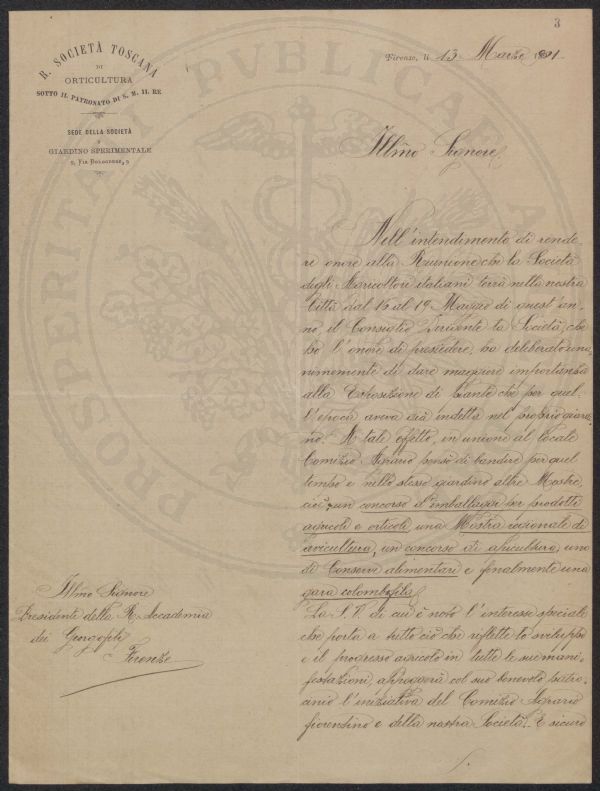 3
R. SOCIETÀ TOSCANA
DI
ORTICULTURA
SOTTO IL PATRONATO DI S. M. IL RE
SEDE DELLA SOCIETÀ
E
GIARDINO SPERIMENTALE
Via Bolognese, 9
Firenze, li 13 Marzo 1891.
Illmo Signore
Nell'intendimento di rende
re onore alla Riunione che la Società
degli Agricoltori italiani terrà nella nostra
Città dal 16 al 19 Maggio di quest'an
no, il Consiglio Dirigente la Società, che
ho l'onore di presiedere, ha deliberato una
nimemente di dare maggiore importanza
alla Esposizione di piante che per quel
l'epoca aveva già indetta nel proprio giardi
no. A tale effetto, in unione al locale
Comizio Agrario pensò di bandire per quel
tempo e nello stesso giardino altre Mostre,
cioè un concorso d'imballaggi per prodotti
agricoli e orticoli, una Mostra regionale di
avicultura, un concorso di apicultura, uno
di Conserve alimentari e finalmente una
gara colombofila.
La S. V. di cui è noto l'interesse speciale
che porta a tutto ciò che riflette lo sviluppo
e il progresso agricolo in tutte le sue mani
festazioni, appoggerà col suo benevolo patro
cinio l'iniziativa del Comizio Agrario
fiorentino e della nostra Società. È sicuro
Illmo Signore
Presidente della R. Accademia
dei Georgofili
Firenze
PROSPERITATI PUBLICAE A